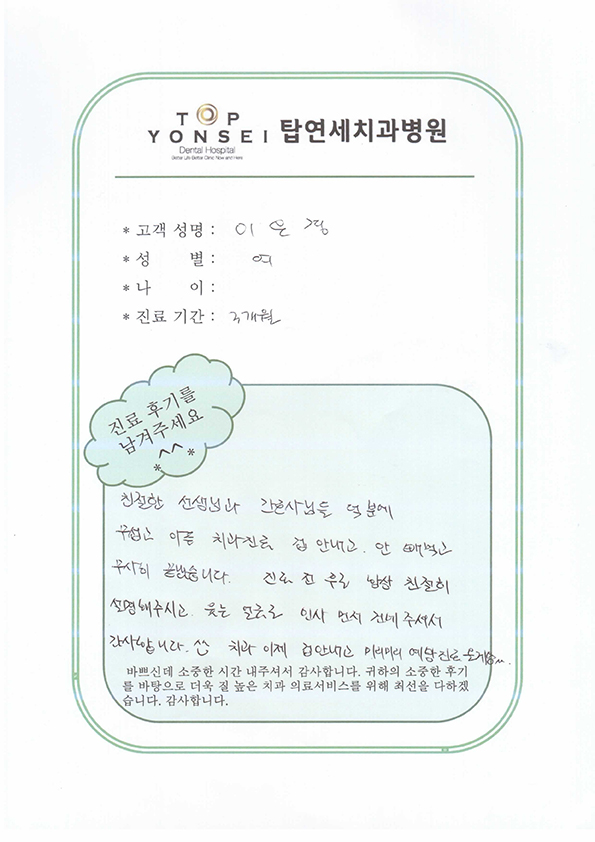 TOP
YONSEI 탑연세치과병원
Dental Hospital
Better Life Better Clinic Now and Here
* 고객 성명 : 이은정
* 성 별 : 여
* 나 이 :
* 진료 기간 : 3개월
진료 후기를
남겨주세요
*^^*
친절한 선생님과 간호사님들 덕분에
무섭고 아픈 치과진료 겁 안내고. 안 빼먹고
무사히 끝냈습니다. 진료 전 후로 항상 친절히
설명해주시고. 웃는 얼굴로 인사 먼저 건네 주셔서
감사합니다. ^^ 치과 이제 겁안내고 미리미리 예방진료 올게용~
바쁘신데 소중한 시간 내주셔서 감사합니다. 귀하의 소중한 후기
를 바탕으로 더욱 질 높은 치과 의료서비스를 위해 최선을 다하겠
습니다. 감사합니다.